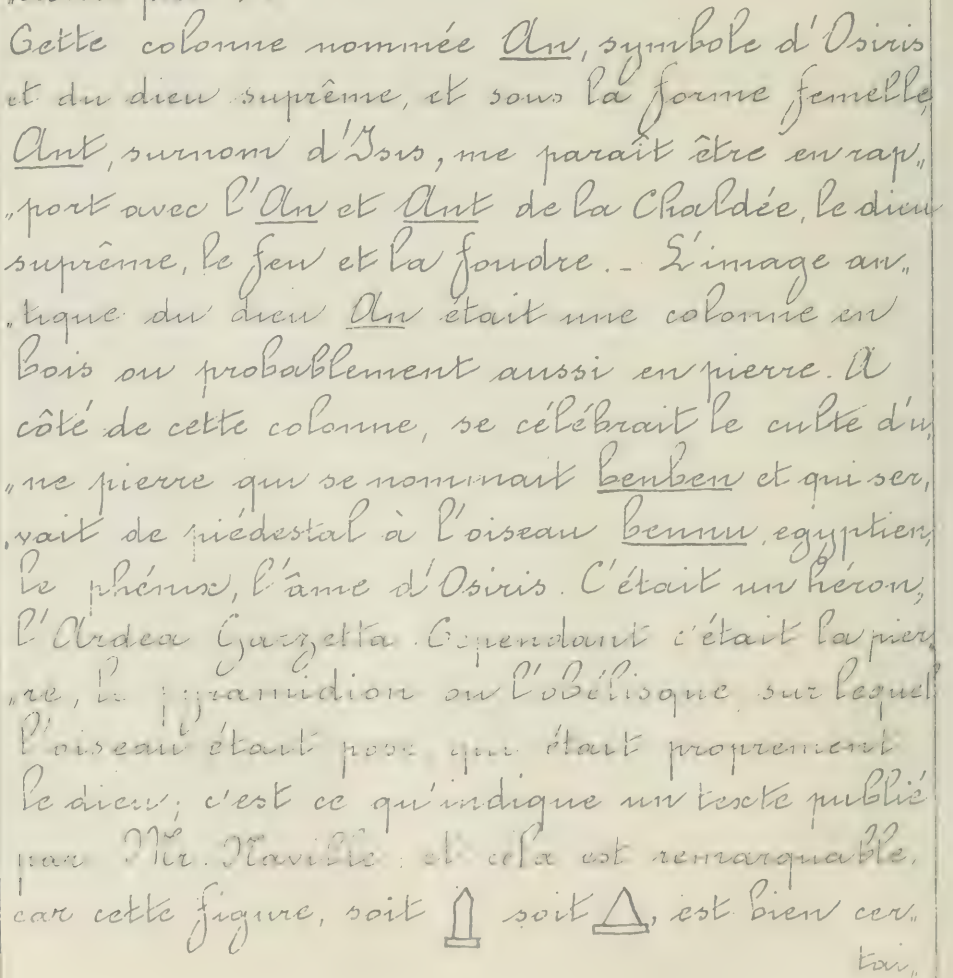 Cette colonne nommée An, symbole d'Osiris
et du dieu suprême, et sous la forme femelle,
Ant, surnom d'Isis, me paraît être en rap„
„port avec l'An et Ant de la Chaldée, le dieu
suprême, le feu et la foudre. _ L'image an„
„tique du dieu An était une colonne en
bois ou probablement aussi en pierre. A
côté de cette colonne, se célébrait le culte d'u„
„ne pierre qui se nommait benben et qui ser„
„vait de piédestal à l'oiseau bennu, egyptien,
le phénix, l'âme d'Osiris. C'était un héron,
l'Ardea Garzetta. Cependant c'était la pier„
„re, le pyramidion ou l'obélisque sur lequel
l'oiseau était posé, qui était proprement
le dieu; c'est ce qu'indique un texte publié
par Mr. Naville: et cela est remarquable,
car cette figure, soit soit , est bien cer„
tai„